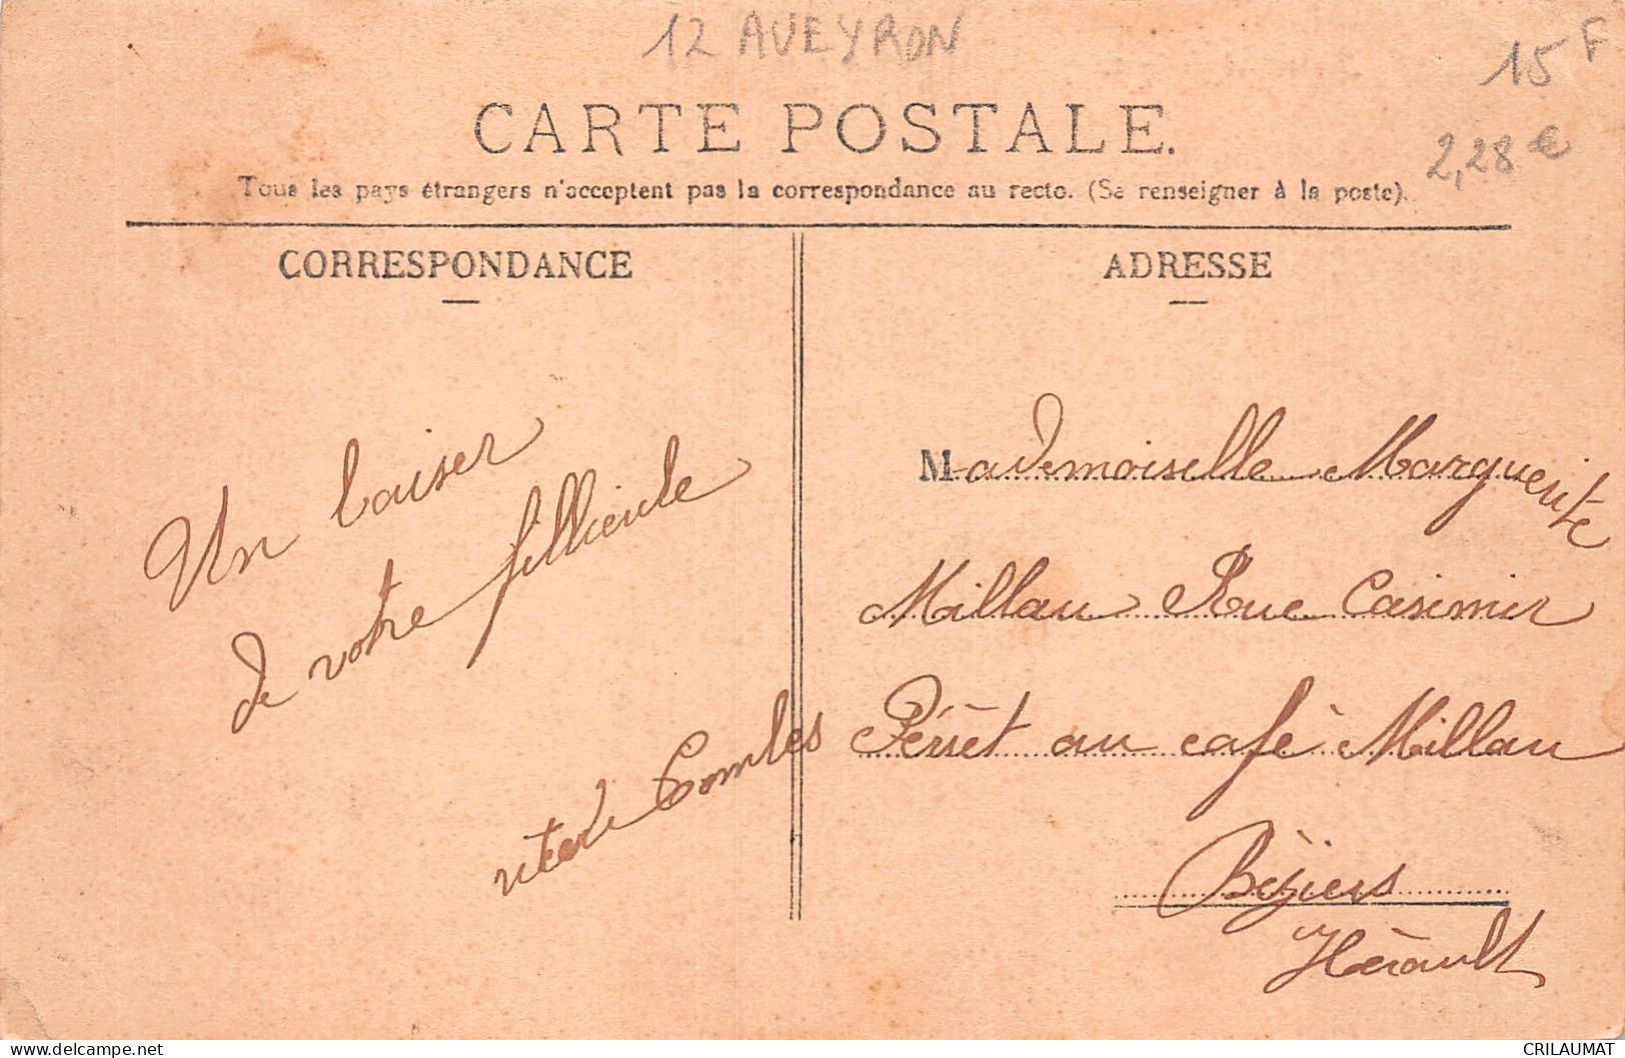 12 AVEYRON
15 F
2,28 €
CARTE POSTALE.
Tous les pays étrangers n'acceptent pas la correspondance au recto. (Se renseigner à la poste).
CORRESPONDANCE
Un baiser
de votre filleule
Combes
ADRESSE
Mademoiselle Marguerite
Millau Rue Casimir
Pérret au café Millau
Béziers
Hérault
CRILAUMAT